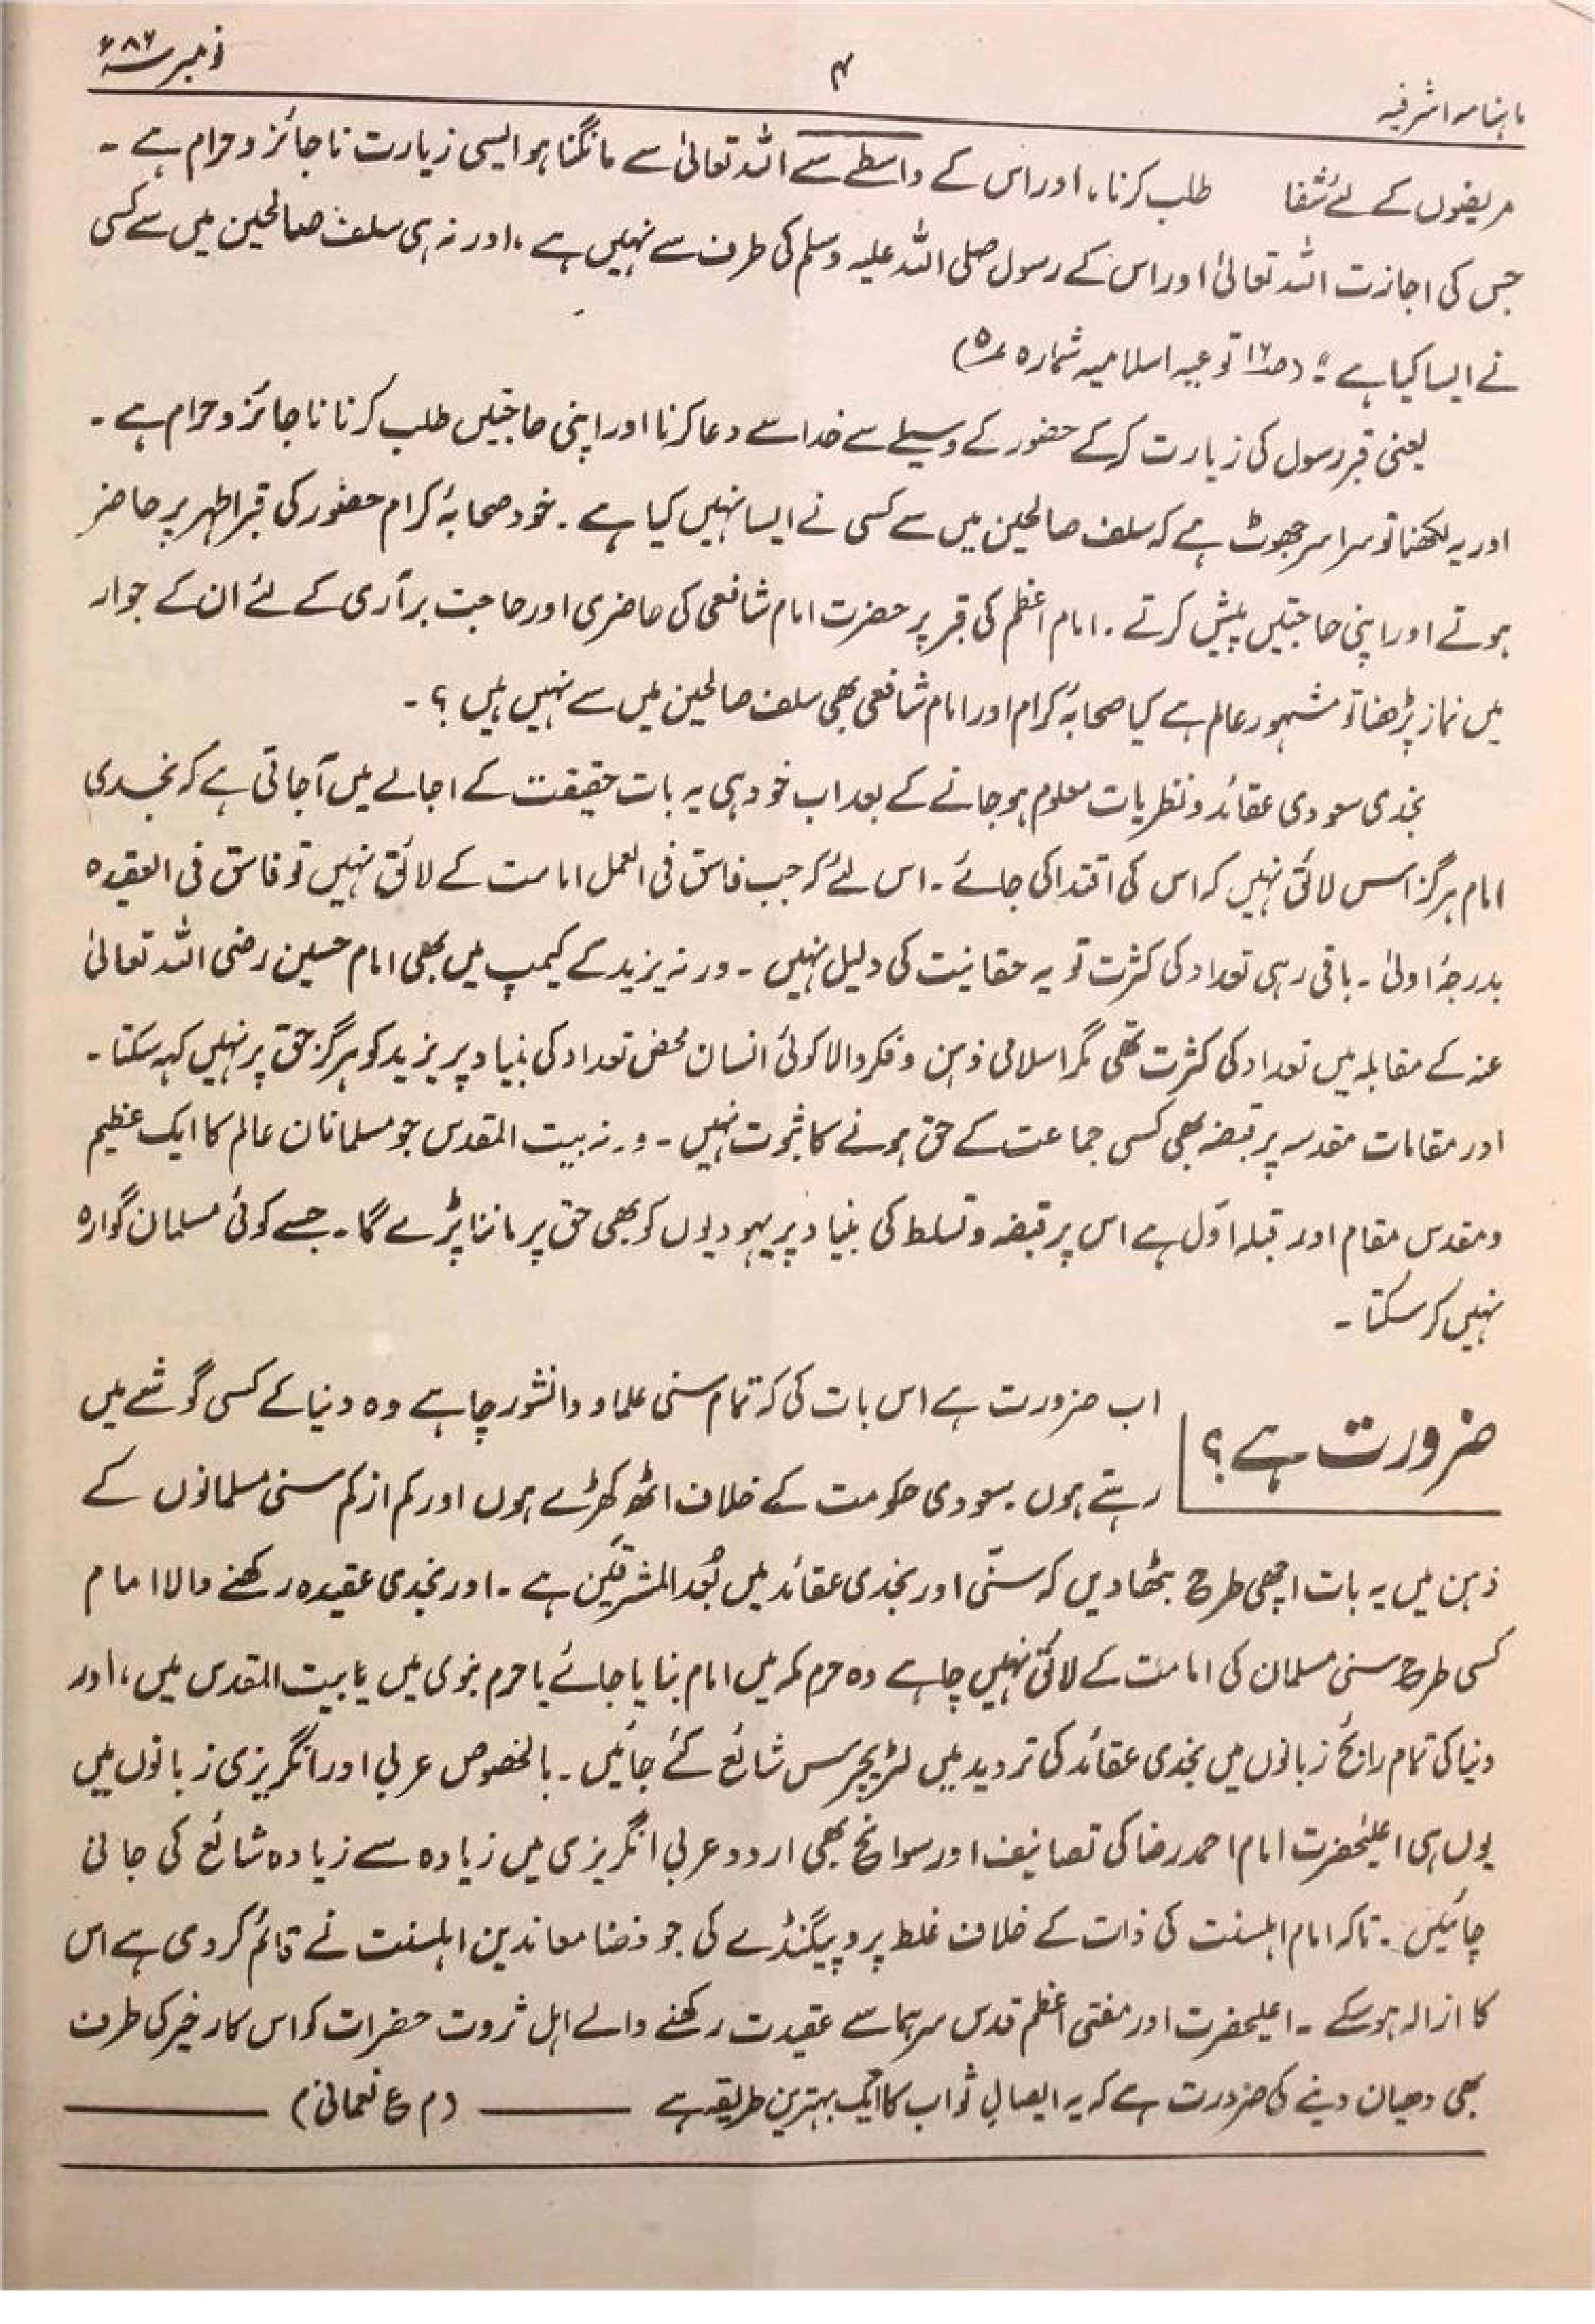 ماہنامہ اشرفیہ ۴ نومبر ۸۶ء
مریضوں کے لئے شفا طلب کرنا، اور اس کے واسطے سے اللہ تعالیٰ سے مانگنا ہو ایسی زیارت ناجائز و حرام ہے ۔
جس کی اجازت اللہ تعالیٰ اور اس کے رسول صلی اللہ علیہ وسلم کی طرف سے نہیں ہے ، اور نہ ہی سلف صالحین میں سے کسی
نے ایسا کیا ہے ؛ (صـ۱۶ توعیہ اسلامیہ شمارہ ۵؎)
یعنی قبر رسول کی زیارت کر کے حضور کے وسیلے سے خدا سے دعا کرنا اور اپنی حاجتیں طلب کرنا ناجائز و حرام ہے ۔
اور یہ لکھنا تو سراسر جھوٹ ہے کہ سلف صالحین میں سے کسی نے ایسا نہیں کیا ہے ۔ خود صحابۂ کرام حضور کی قبر اطہر پر حاضر
ہوتے اور اپنی حاجتیں پیش کرتے ۔ امام اعظم کی قبر پر حضرت امام شافعی کی حاضری اور حاجت برآری کے لئے ان کے جوار
میں نماز پڑھنا تو مشہور عالم ہے کیا صحابۂ کرام اور امام شافعی بھی سلف صالحین میں سے نہیں ہیں ؟ ۔
نجدی سعودی عقائد و نظریات معلوم ہو جانے کے بعد اب خود ہی یہ بات حقیقت کے اجالے میں آجاتی ہے کہ نجدی
امام ہرگز اس لائق نہیں کہ اس کی اقتدا کی جائے ۔ اس لئے کہ جب فاسق فی العمل امامت کے لائق نہیں تو فاسق فی العقیدہ
بدرجۂ اولیٰ ۔ باقی رہی تعداد کی کثرت تو یہ حقانیت کی دلیل نہیں ۔ ورنہ یزید کے کیمپ میں بھی امام حسین رضی اللہ تعالیٰ
عنہ کے مقابلہ میں تعداد کی کثرت تھی مگر اسلامی ذہن و فکر والا کوئی انسان محض تعداد کی بنیاد پر یزید کو ہرگز حق پر نہیں کہہ سکتا ۔
اور مقامات مقدسہ پر قبضہ بھی کسی جماعت کے حق ہونے کا ثبوت نہیں ۔ ورنہ بیت المقدس جو مسلمانان عالم کا ایک عظیم
و مقدس مقام اور قبلہ اوّل ہے اس پر قبضہ و تسلط کی بنیاد پر یہودیوں کو بھی حق پر ماننا پڑے گا ۔ جسے کوئی مسلمان گوارہ
نہیں کر سکتا ۔
ضرورت ہے ؟
اب ضرورت ہے اس بات کی کہ تمام سنی علماء و دانشور چاہے وہ دنیا کے کسی گوشے میں
رہتے ہوں ۔ سعودی حکومت کے خلاف اٹھ کھڑے ہوں اور کم از کم سنی مسلمانوں کے
ذہن میں یہ بات اچھی طرح بٹھا دیں کہ سنّی اور نجدی عقائد میں بُعد المشرقین ہے ۔ اور نجدی عقیدہ رکھنے والا امام
کسی طرح سنی مسلمان کی امامت کے لائق نہیں چاہے وہ حرم مکہ میں امام بنایا جائے یا حرم نبوی میں یا بیت المقدس میں ، اور
دنیا کی تمام رائج زبانوں میں نجدی عقائد کی تردید میں لٹریچرس شائع کئے جائیں ۔ بالخصوص عربی اور انگریزی زبانوں میں
یوں ہی اعلیٰحضرت امام احمد رضا کی تصانیف اور سوانح بھی اردو عربی انگریزی میں زیادہ سے زیادہ شائع کی جانی
چاہئیں ۔ تاکہ امام اہلسنت کی ذات کے خلاف غلط پروپیگنڈے کی جو فضا معاندین اہلسنت نے قائم کر دی ہے اس
کا ازالہ ہو سکے ۔ اعلیحضرت اور مفتی اعظم قدس سرہما سے عقیدت رکھنے والے اہل ثروت حضرات کو اس کار خیر کی طرف
بھی دھیان دینے کی ضرورت ہے کہ یہ ایصالِ ثواب کا ایک بہترین طریقہ ہے ——— (م ع نعمانی) ———